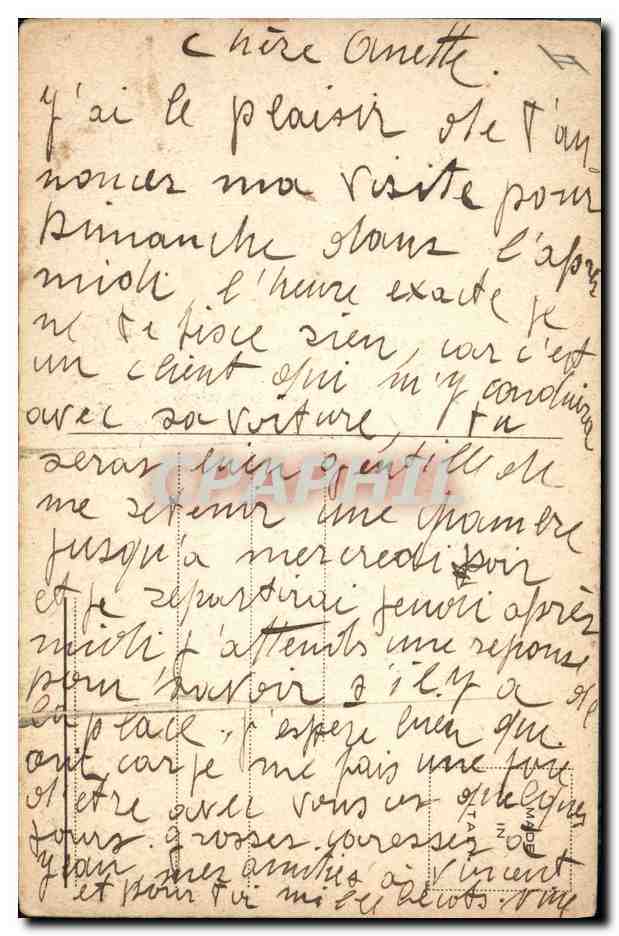 Chère Anette.
J'ai le plaisir de t'an-
noncer ma visite pour
Dimanche dans l'après
midi, l'heure exacte je
ne te fixe rien, car c'est
un client qui m'y conduira
avec sa voiture, tu
seras bien gentille de
me retenir une chambre
jusqu'à mercredi soir
et je repartirai jeudi après
midi j'attends une reponse
pour savoir s'il y a de
la place, j'espère bien que
oui, car je me fais une joie
d'être avec vous ces quelques
jours. grosses caresses à
Jean, mes amitiés à Vincent
et pour toi mille becots.
MADE
IN
ITALY
CPAPHIL